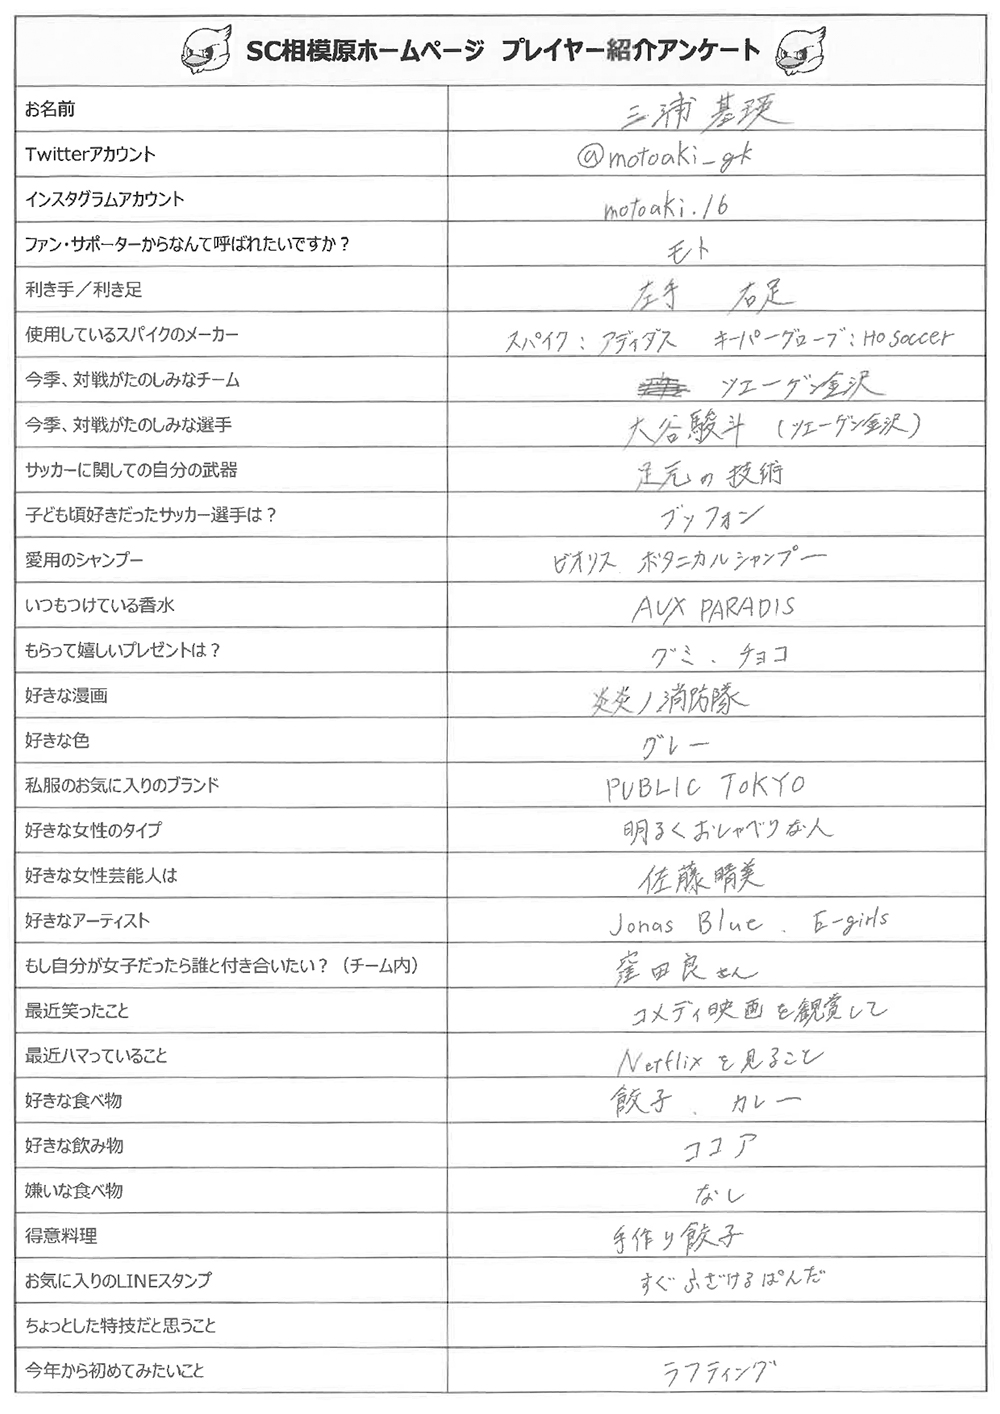 SC相模原ホームページ プレイヤー紹介アンケート
お名前 三浦 基瑛
Twitterアカウント @motoaki_gk
インスタグラムアカウント motoaki.16
ファン・サポーターからなんて呼ばれたいですか？ モト
利き手／利き足 左手 右足
使用しているスパイクのメーカー スパイク：アディダス キーパーグローブ：HO Soccer
今季、対戦がたのしみなチーム ツエーゲン金沢
今季、対戦がたのしみな選手 大谷駿斗 (ツエーゲン金沢)
サッカーに関しての自分の武器 足元の技術
子ども頃好きだったサッカー選手は？ ブッフォン
愛用のシャンプー ビオリス ボタニカルシャンプー
いつもつけている香水 AUX PARADIS
もらって嬉しいプレゼントは？ グミ、チョコ
好きな漫画 炎炎ノ消防隊
好きな色 グレー
私服のお気に入りのブランド PUBLIC TOKYO
好きな女性のタイプ 明るくおしゃべりな人
好きな女性芸能人は 佐藤晴美
好きなアーティスト Jonas Blue、E-girls
もし自分が女子だったら誰と付き合いたい？（チーム内） 窪田良さん
最近笑ったこと コメディ映画を観賞して
最近ハマっていること Netflixを見ること
好きな食べ物 餃子、カレー
好きな飲み物 ココア
嫌いな食べ物 なし
得意料理 手作り餃子
お気に入りのLINEスタンプ すぐふざけるぱんだ
ちょっとした特技だと思うこと
今年から初めてみたいこと ラフティング